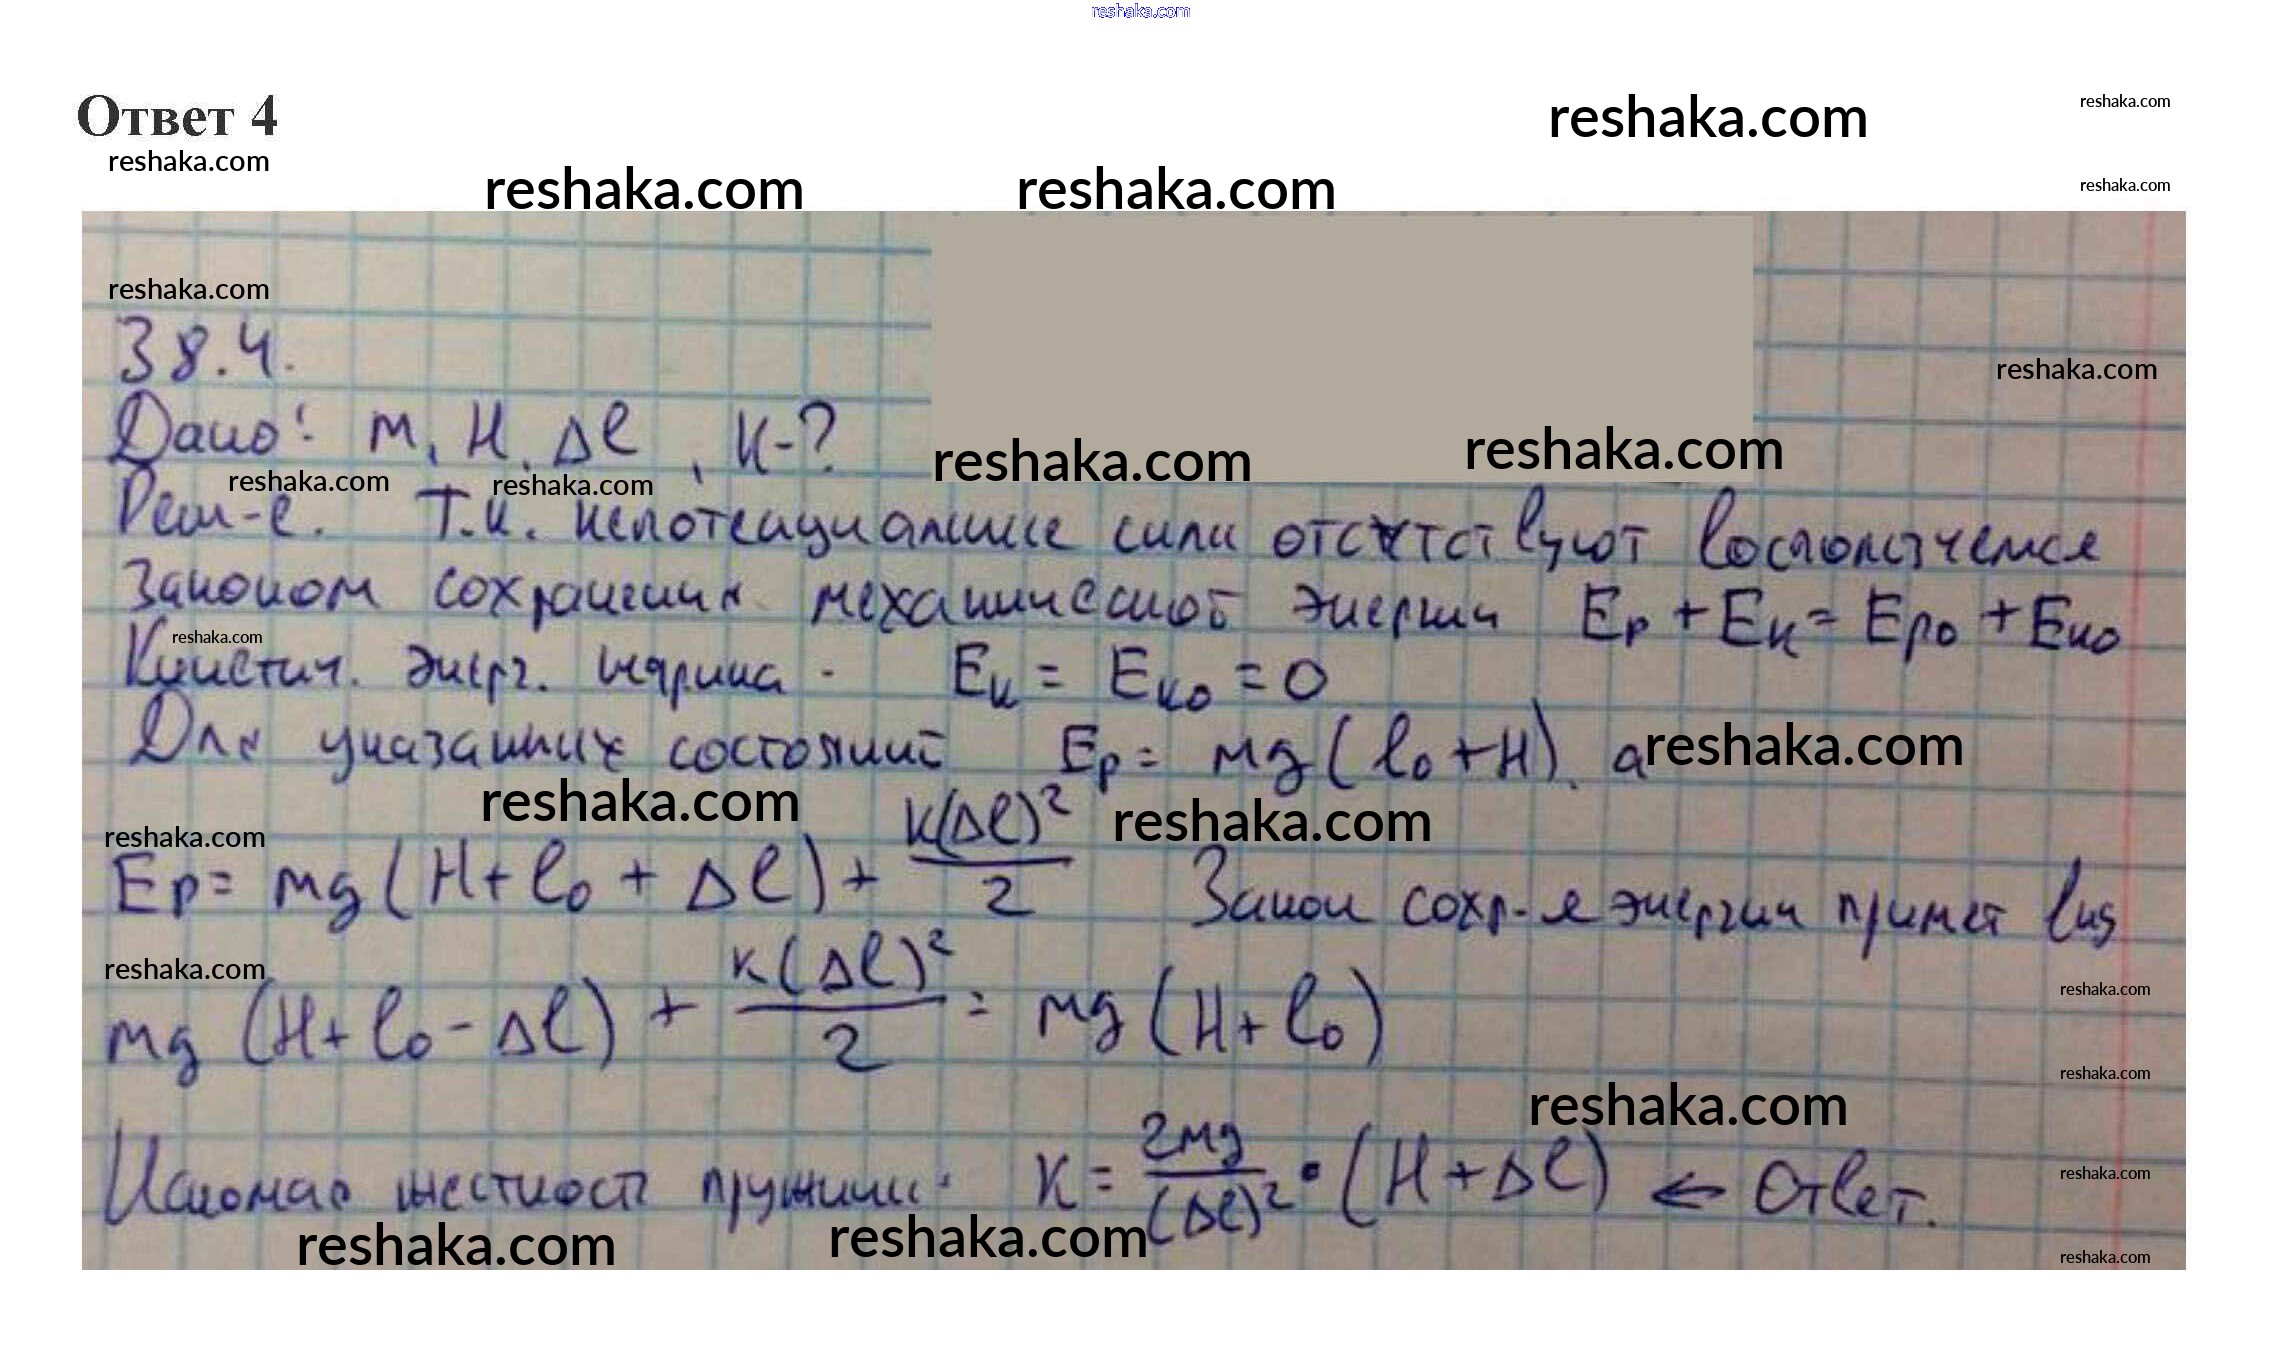 reshaka.com
Ответ 4
reshaka.com reshaka.com
reshaka.com
reshaka.com reshaka.com reshaka.com
reshaka.com
38.4.
reshaka.com
Дано: m, H, Δl, К-?
reshaka.com reshaka.com
reshaka.com reshaka.com
Реш-е. Т.к. непотенциальные силы отсутствуют воспользуемся
законом сохранения механической энергии Ep + Eк = Ep0 + Eк0
reshaka.com
Кинетич. энерг. шарика - Eк = Eк0 = 0
Для указанных состояний Ep = mg(l0+H), а
reshaka.com
reshaka.com reshaka.com
reshaka.com
Ep = mg(H+l0 + Δl) + К(Δl)²/2 Закон сохр-я энергии примет вид
reshaka.com
mg (H+l0 - Δl) + к(Δl)²/2 = mg (H+l0)
reshaka.com
reshaka.com
reshaka.com
Искомая жесткость пружины: К = 2mg/(Δl)² • (H+Δl) ← Ответ.
reshaka.com
reshaka.com reshaka.com
reshaka.com